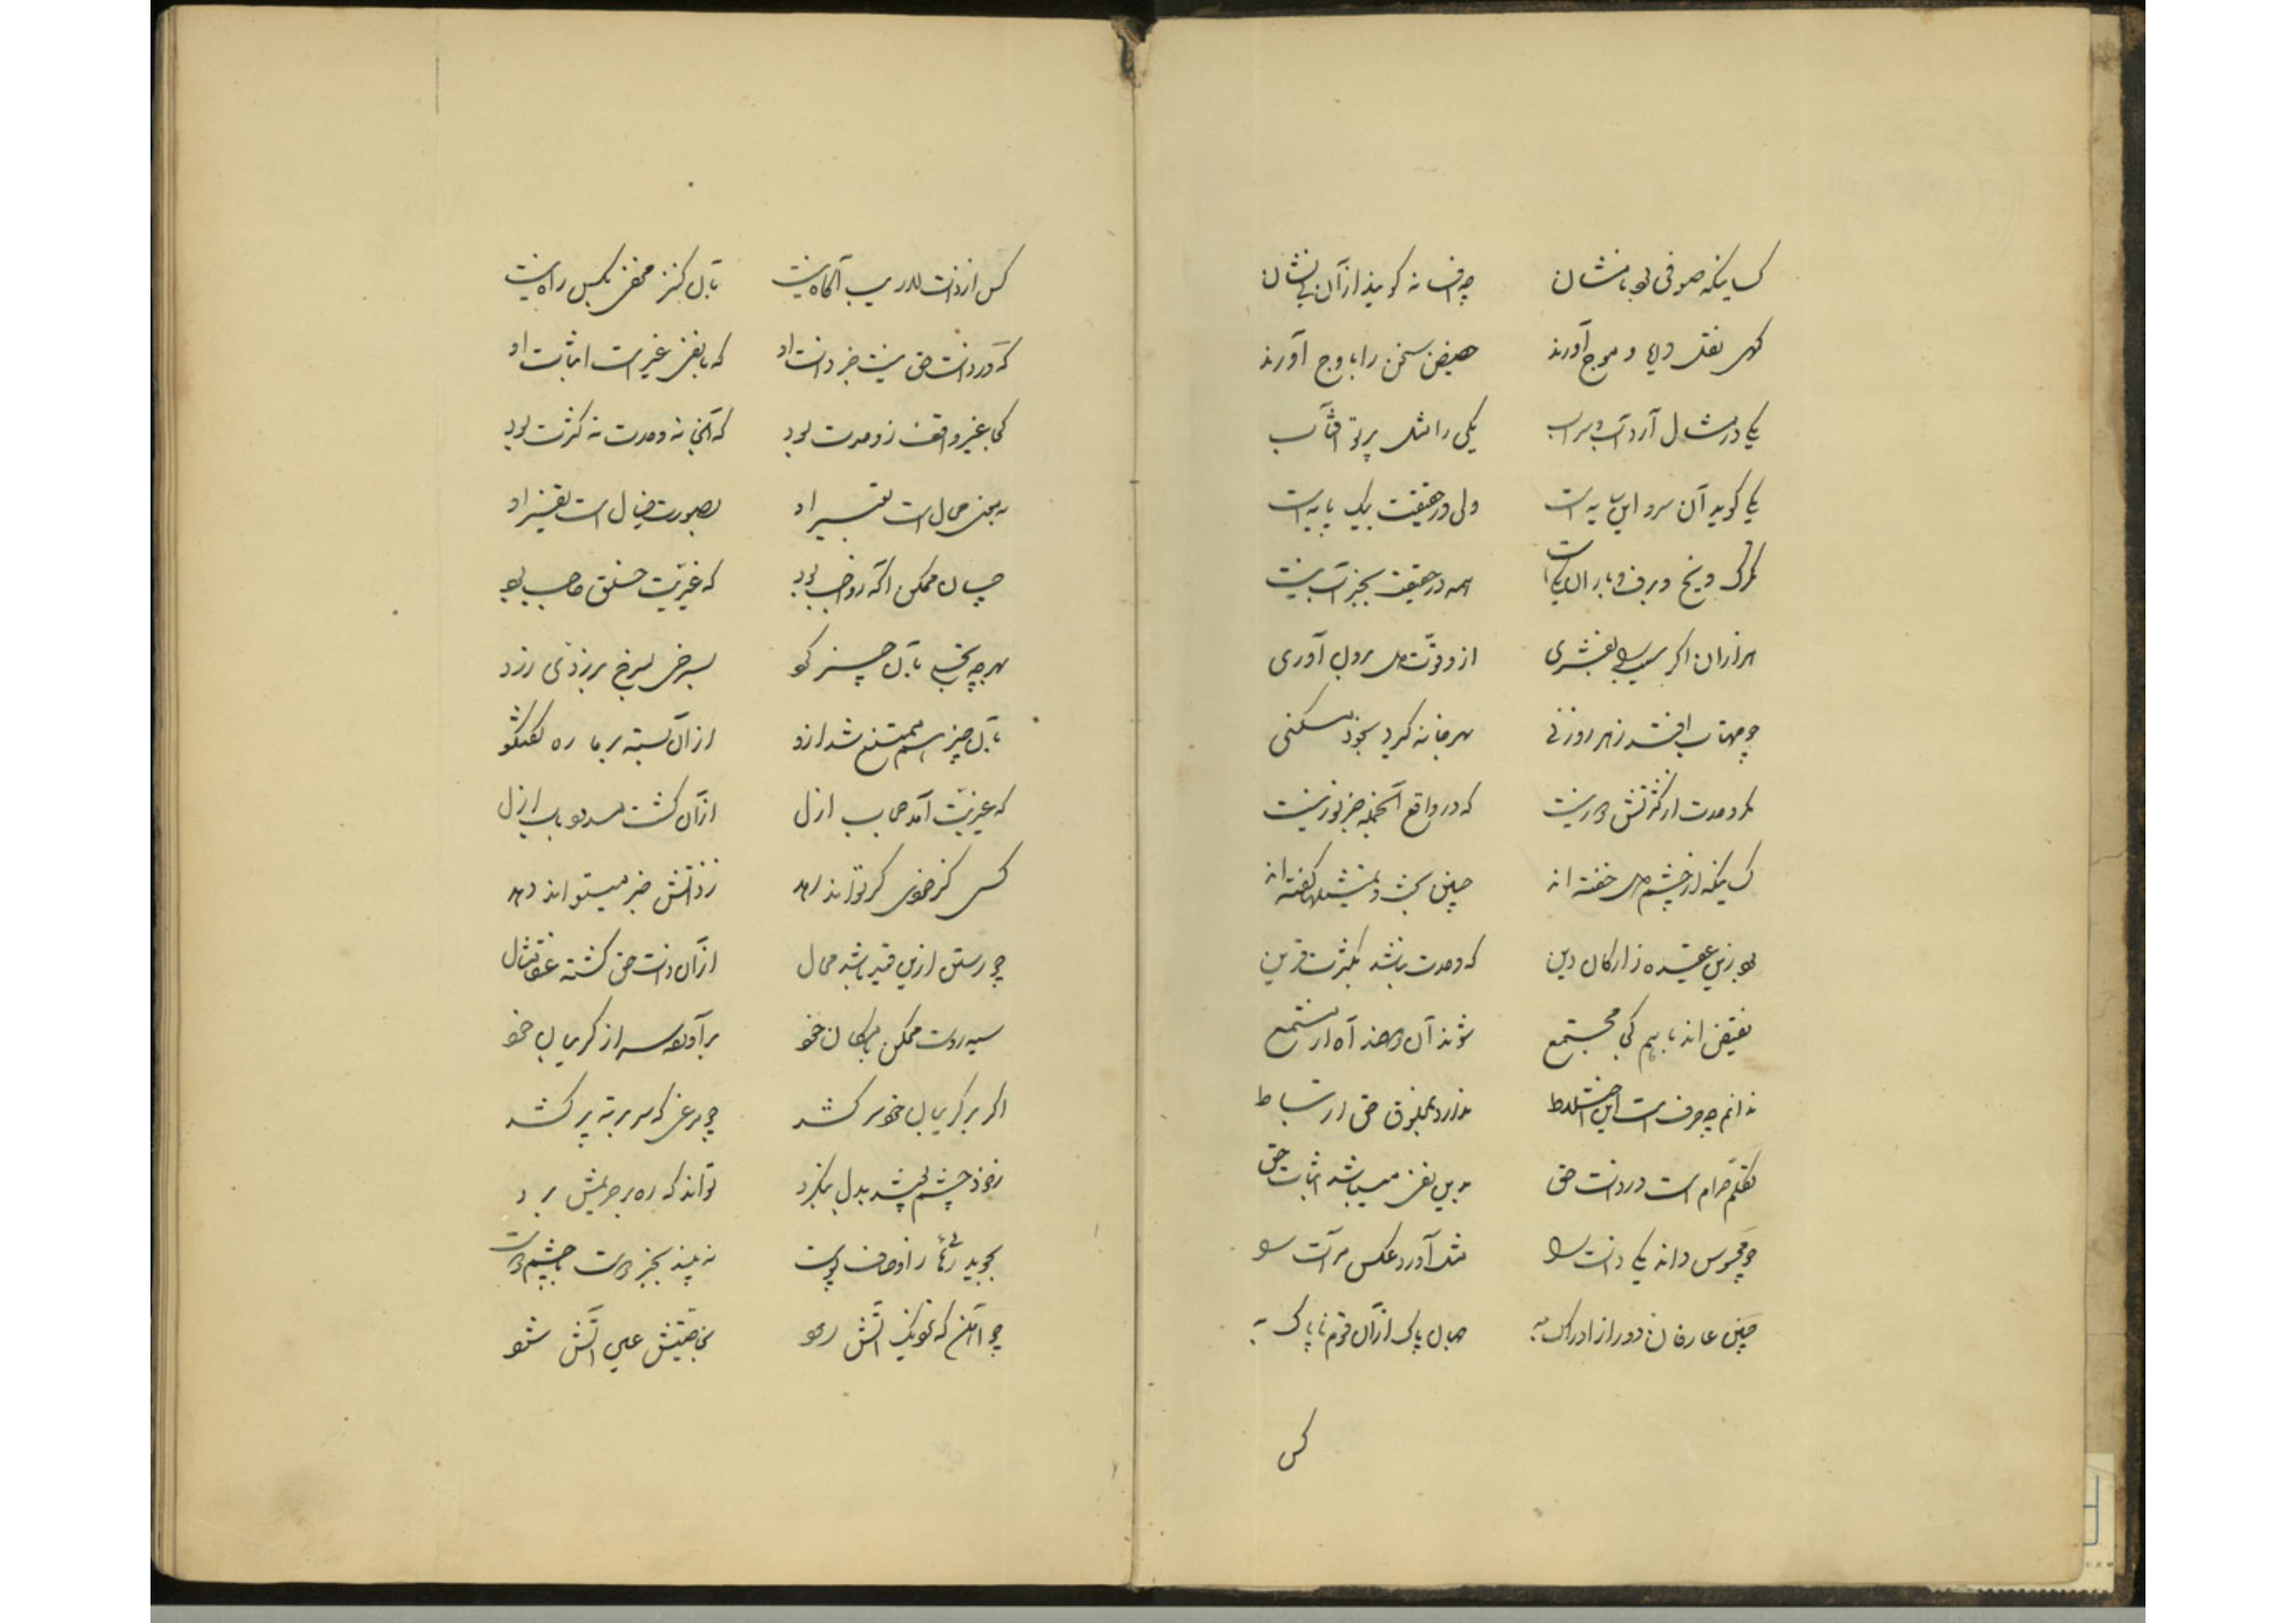 کسانیکه صوفی بود نامشان چه افسانه گویند از آن بی نشان
گهی نقل دریا و موج آورند حضیض سخن را باوج آورند
یکی در مثال آرد آب و سراب یکی را مثل پرتو آفتاب
یکی گوید آن سرو این سایه است ولی در حقیقت بیک پایه است
تگرگ و یخ و برف و باران یکیست همه در حقیقت بجز آب نیست
هزاران اگر سیب را بفشری از و قوت دل برون آوری
چو مهتاب افتد ز هر روزنی بهر خانه گیرد بخود مسکنی
مگو وحدت از کثرتش دور نیست که در واقع آنجمله جز نور نیست
کسانیکه از چشم دل خفته اند چنین بحث و تمثیلها گفته اند
بود زین عقیده ز ارکان دین که وحدت نباشد بکثرت قرین
نقیض اند با هم کی مجتمع شوند آن دو ضد آه از مستمع
ندانم چه حرف است این اختلاط ندارد بمخلوق حق ارتباط
تکلم حرام است در ذات حق بدین نفی میباشد اثبات حق
چو محسوس داند یکی ذات را مثل آورد عکس مرآت را
چنین عارفان دور از ادراک به جهان پاک از آن قوم ناپاک به
کس
کس از ذات لاریب آگاه نیست بآن کنز مخفی بکس راه نیست
که در ذات حق نیست جز ذات او که با نفی غیر است اثبات او
کجا غیر واقف ز وحدت بود که آنجا نه وحدت نه کثرت بود
بمعنی محال است تفسیر او بصورت خیال است تقریر او
چسان ممکن آگه ز واجب بود که غیریت خلق حاجب بود
بهر چه بآن چیز کو
بآن چیز ممتنع شد ازو از آن بسته بر ما ره گفتگو
که غیریت آمد حجاب ازل از آن گشت مسدود باب ازل
کسی کز خودی کی تواند رهد ز ذاتش خبر میتواند دهد
چو رستن ازین قید باشد محال از آن ذات حق گشته عنقا مثال
سیه روست ممکن بامکان خود برآورده سر از گریبان خود
اگر بر گریبان خود سر کشد چو مرغی که سر بر ته پر کشد
ز خود چشم پوشد بدل بنگرد تواند که ره بر حریمش برد
بجوید رهائی ز اوصاف پوست نه بیند بجز دوست با چشم دوست
چو آهن که نزدیک آتش رود بخاصیتش عین آتش شود